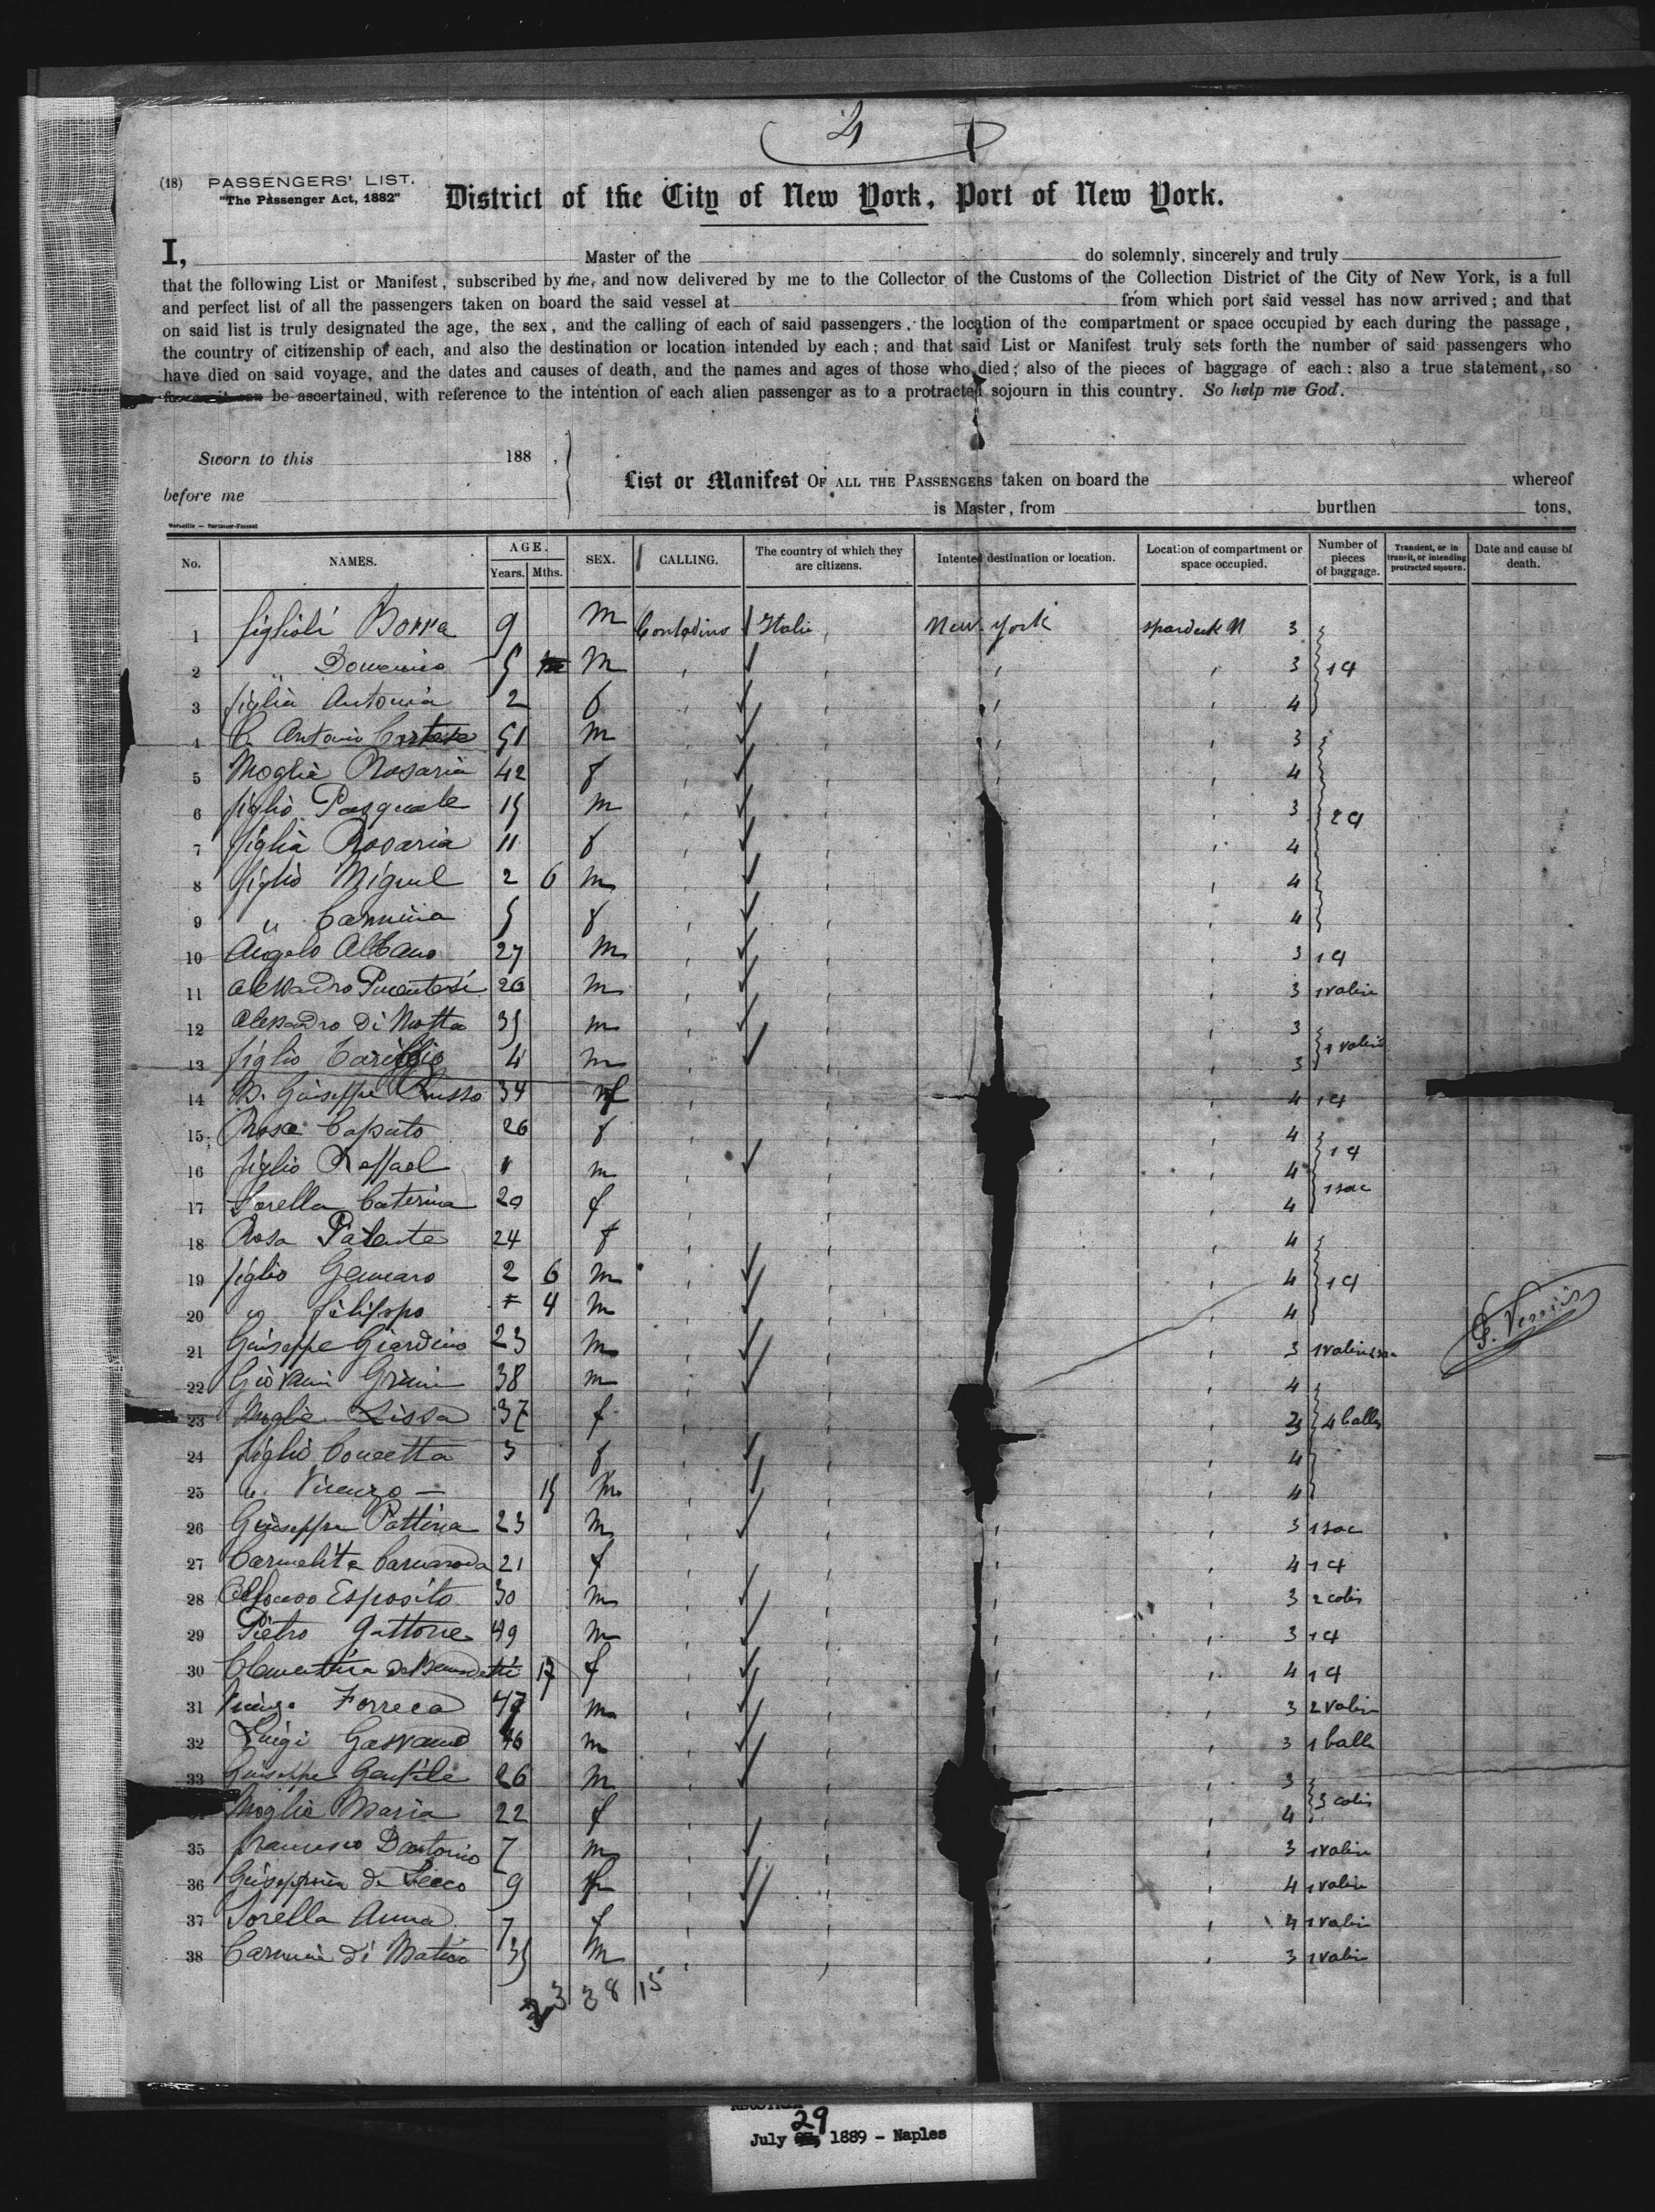 4
(18) PASSENGERS' LIST.
"The Passenger Act, 1882"
District of the City of New York, Port of New York.
I, Master of the do solemnly, sincerely and truly
that the following List or Manifest, subscribed by me, and now delivered by me to the Collector of the Customs of the Collection District of the City of New York, is a full
and perfect list of all the passengers taken on board the said vessel at from which port said vessel has now arrived; and that
on said list is truly designated the age, the sex, and the calling of each of said passengers, the location of the compartment or space occupied by each during the passage,
the country of citizenship of each, and also the destination or location intended by each; and that said List or Manifest truly sets forth the number of said passengers who
have died on said voyage, and the dates and causes of death, and the names and ages of those who died; also of the pieces of baggage of each: also a true statement, so
be ascertained, with reference to the intention of each alien passenger as to a protracted sojourn in this country. So help me God.
Sworn to this 188 ,
before me
List or Manifest OF ALL THE PASSENGERS taken on board the whereof
is Master, from burthen tons,
No. NAMES. AGE. Years. Mths. SEX. CALLING. The country of which they are citizens. Intented destination or location. Location of compartment or space occupied. Number of pieces of baggage. Transient, or in transit, or intending protracted sojourn. Date and cause of death.
1 figlioli 9 m Contadino Italie New-York spardeck N 3
2 " Domenico 5 m 3 1 4
3 figlia Antonia 2 f 4
4 Antonio 51 m 3
5 Moglie Rosaria 42 f 4
6 figlio Pasquale 15 m 3 2 4
7 figlia Rosaria 11 f 4
8 figlio Miguel 2 6 m 4
9 " Carmina 5 f 4
10 Angelo Albano 27 m 3 1 4
11 26 m 3 1 valise
12 Alessandro di Motta 35 m 3 1 valise
13 figlio 4 m 3
14 Giuseppe Russo 34 f 4 1 4
15 Rosa Caputo 26 f 4 1 4
16 figlio Raffael 11 m 4 1 sac
17 Sorella Caterina 20 f 4
18 Rosa Palente 24 f 4
19 figlio Gennaro 2 6 m 4 1 4
20 " filippo 4 m 4
21 Giuseppe Giardino 23 m 3 1 valise
22 Giovani 38 m 4
23 Moglie Lissa 37 f 4 balles
24 figlio Concetta 3 f 4
25 " Vicenzo 15 m 4
26 Giuseppe Pattina 23 m 3 1 sac
27 21 f 4 1 4
28 Alfonso Esposito 30 m 3 2 colis
29 Pietro Gattone 49 m 3 1 4
30 Clementina de Benedetti 17 f 4 1 4
31 Forreca 47 m 3 2 valise
32 Luigi 46 m 3 1 balle
33 Giuseppe Gentile 26 m 3 3 colis
Moglie Maria 22 f 4
35 francesco Dantonio 7 m 3 1 valise
36 Giuseppina di Lecco 9 f 4 1 valise
37 Sorella Anna 7 f 4 1 valise
38 Carmine di Matteo 35 m 3 1 valise
23 38 15
29
July 1889 - Naples